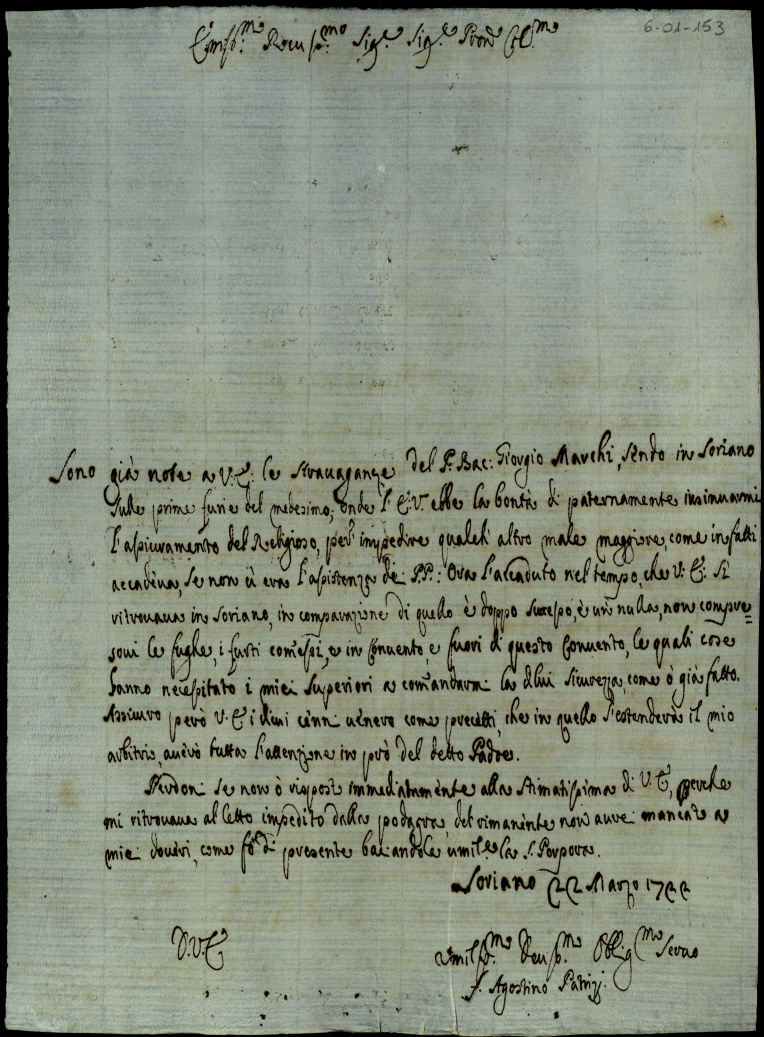 6-01-153
Em.mo Reu.mo Sig.e Sig.e Pron Col.mo
Sono già note a V:E: le strauaganze del P. Bac: Giorgio Marchi, sendo in Soriano
sulle prime furie del medesimo; onde l'E:V: ebbe la bontà di paternamente insinuarmi
l'assicuramento del Religioso, per impedire qualche altro male maggiore, come in fatti
accadeva, se non u era l'assistenza de PP: Ora l'accaduto nel tempo, che V: E: si
ritrouaua in Soriano, in comparazione di quello è doppo successo, è un nulla, non compre=
soui le fughe, i furti comessi, e in Conuento, e fuori di questo Conuento, le quali cose
hanno necessitato i miei Superiori a comandarmi la dilui sicurezza, come ò già fatto.
Assicuro però V. E. i diui cenni uenero come precetti, che in quello s'estenderà il mio
arbitrio, auerò tutta l'attenzione in prò del detto Padre.
Perdoni se non ò risposto immediatamente alla stimatissima di V. E, perche
mi ritrouaua al letto impedito dalla podagra, del rimanente non aurei mancato a
miei doueri, come fò di presente baciandole umil.e la S. Porpora.
Soriano 22 Marzo 1722
D.V.E
Umil.mo Deu.mo Oblig.mo Seruo
F. Agostino Patrizj